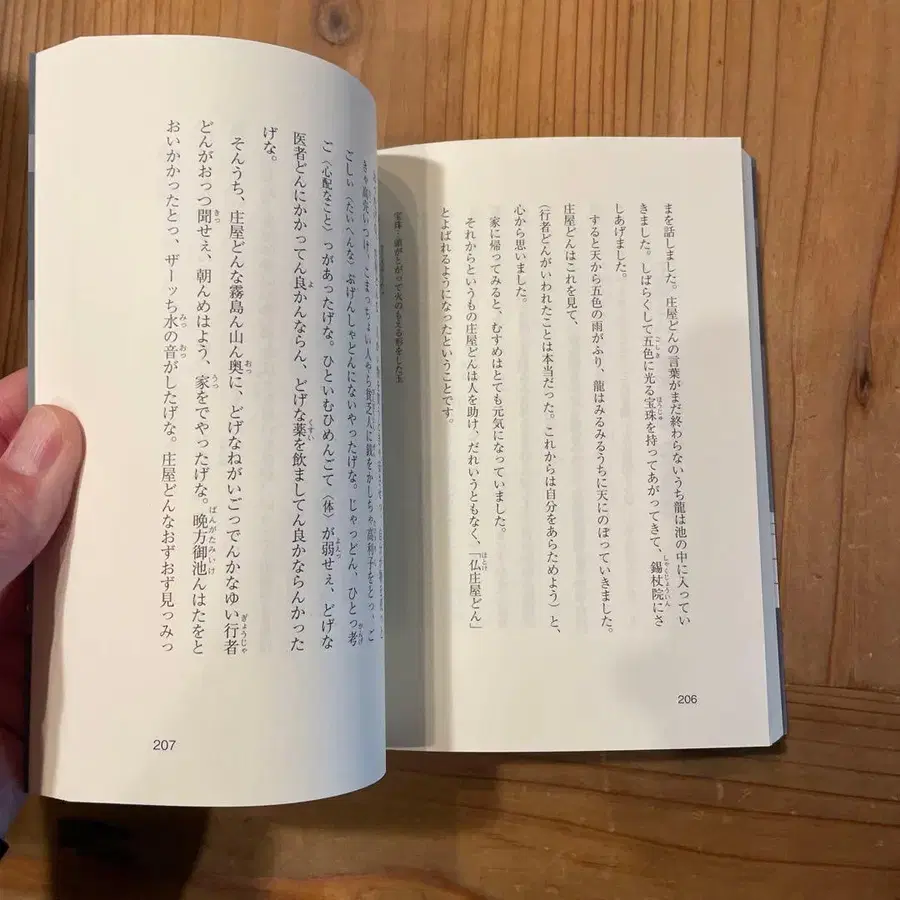 まを話しました。庄屋どんの言葉がまだ終わらないうち龍は池の中に入ってい
きました。しばらくして五色に光る宝珠を持ってあがってきて、錫杖院にさ
しあげました。
すると天から五色の雨がふり、龍はみるみるうちに天にのぼっていきました。
庄屋どんはこれを見て、
(行者どんがいわれたことは本当だった。これからは自分をあらためよう)と、
心から思いました。
家に帰ってみると、むすめはとても元気になっていました。
それからというもの庄屋どんは人を助け、だれいうともなく、「仏庄屋どん」
とよばれるようになったということです。
宝珠…頭がとがって火のもえる形をした玉
206
きゃ高洗いつけ、こまっちょい人やら貧乏人に銭をかしちゃ高利子をとっ、ご
ごしい(たいへんな)ぶげんしゃどんにないやったげな。じゃっどん、ひとっ考
ご(心配なこと)っがあったげな。ひといむひめんごて(体)が弱せえ、どげな
医者どんにかかってん良かんならん、どげな薬を飲ましてん良かならんかった
げな。
そんうち、庄屋どんな霧島ん山ん奥に、どげなねがいごっでんかなゆい行者
どんがおっ聞せえ、朝んめはよう、家をでやったげな。晩方御池んはたをと
おいかかったとっ、ザーッち水の音がしたげな。庄屋どんなおずおず見っみっ
207